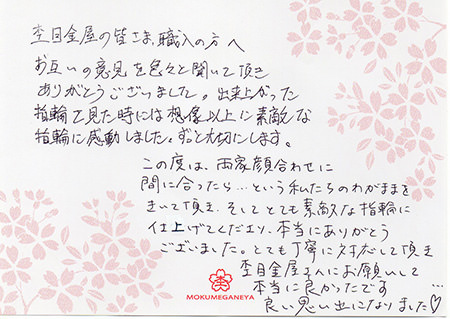 杢目金屋の皆さま、職人の方へ
お互いの意見を色々と聞いて頂き
ありがとうございました。出来上がった
指輪を見た時には想像以上に素敵な
指輪に感動しました。ずっと大切にします。
この度は、両家顔合わせに
間に合ったら…という私たちのわがままを
きいて頂き、そしてとても素敵な指輪に
仕上げてくださり、本当にありがとう
ございました。とても丁寧に対応して頂き
杢目金屋さんにお願いして
本当に良かったです…
良い思い出になりました♡
杢
MOKUMEGANEYA